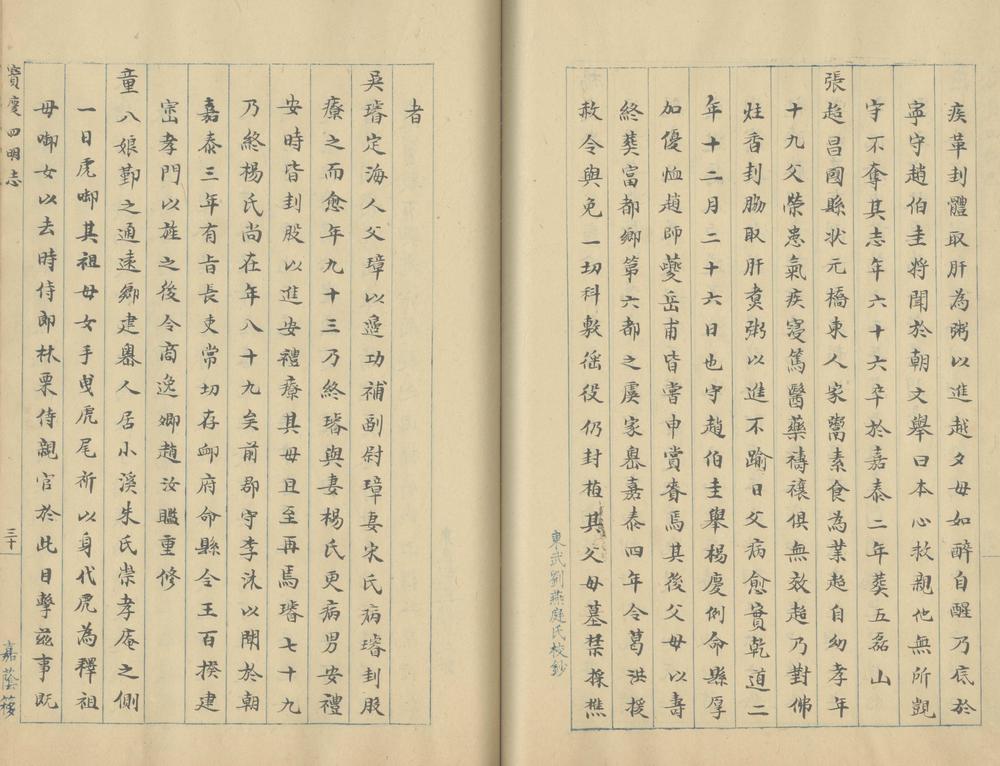 疾革刲體取肝為粥以進越夕母如醉自醒乃底於
寜守趙伯圭将聞於朝文舉曰本心救親他無所覬
守不奪其志年六十六卒於嘉泰二年葬五磊山
張超昌國縣状元橋東人家鬻素食為業超自幼孝年
十九父榮患氣疾寖篤醫藥禱禳俱無效超乃對佛
炷香刲脇取肝煑粥以進不踰日父病愈實乾道二
年十二月二十六日也守趙伯圭舉楊慶例命縣厚
加優恤趙師夔岳甫皆嘗申賞賚焉其後父母以壽
終葬富都鄉第六都之虞家嶴嘉泰四年令葛洪援
赦令與免一切科敷徭役仍封植其父母墓禁採樵
東武劉燕庭氏校鈔
者
吳璿定海人父璋以邊功補副尉璋妻宋氏病璿刲股
療之而愈年九十三乃終璿與妻楊氏更病男安禮
安時皆刲股以進安禮療其母且至再焉璿七十九
乃終楊氏尚在年八十九矣前郡守李沐以聞於朝
嘉泰三年有旨長吏常切存邺府命縣令王百揆建
崈孝門以旌之後令商逸卿趙汝驥重修
童八娘鄞之通遠鄉建嶴人居小溪朱氏崇孝庵之側
一日虎啣其祖母女手曳虎尾祈以身代虎為釋祖
母啣女以去時侍郎林栗侍親官於此日擊兹事既
寳慶四明志
三十
嘉蔭簃